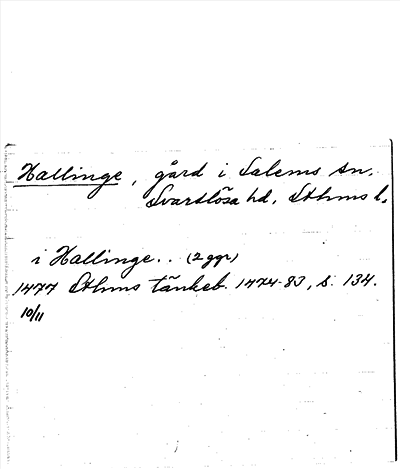 Hallinge, gård i Salems sn.
Svartlösa hd. Sthms l.
i Hallinge.. (2 ggr)
1477 Sthms tänkeb. 1474-83, s. 134.
10/11